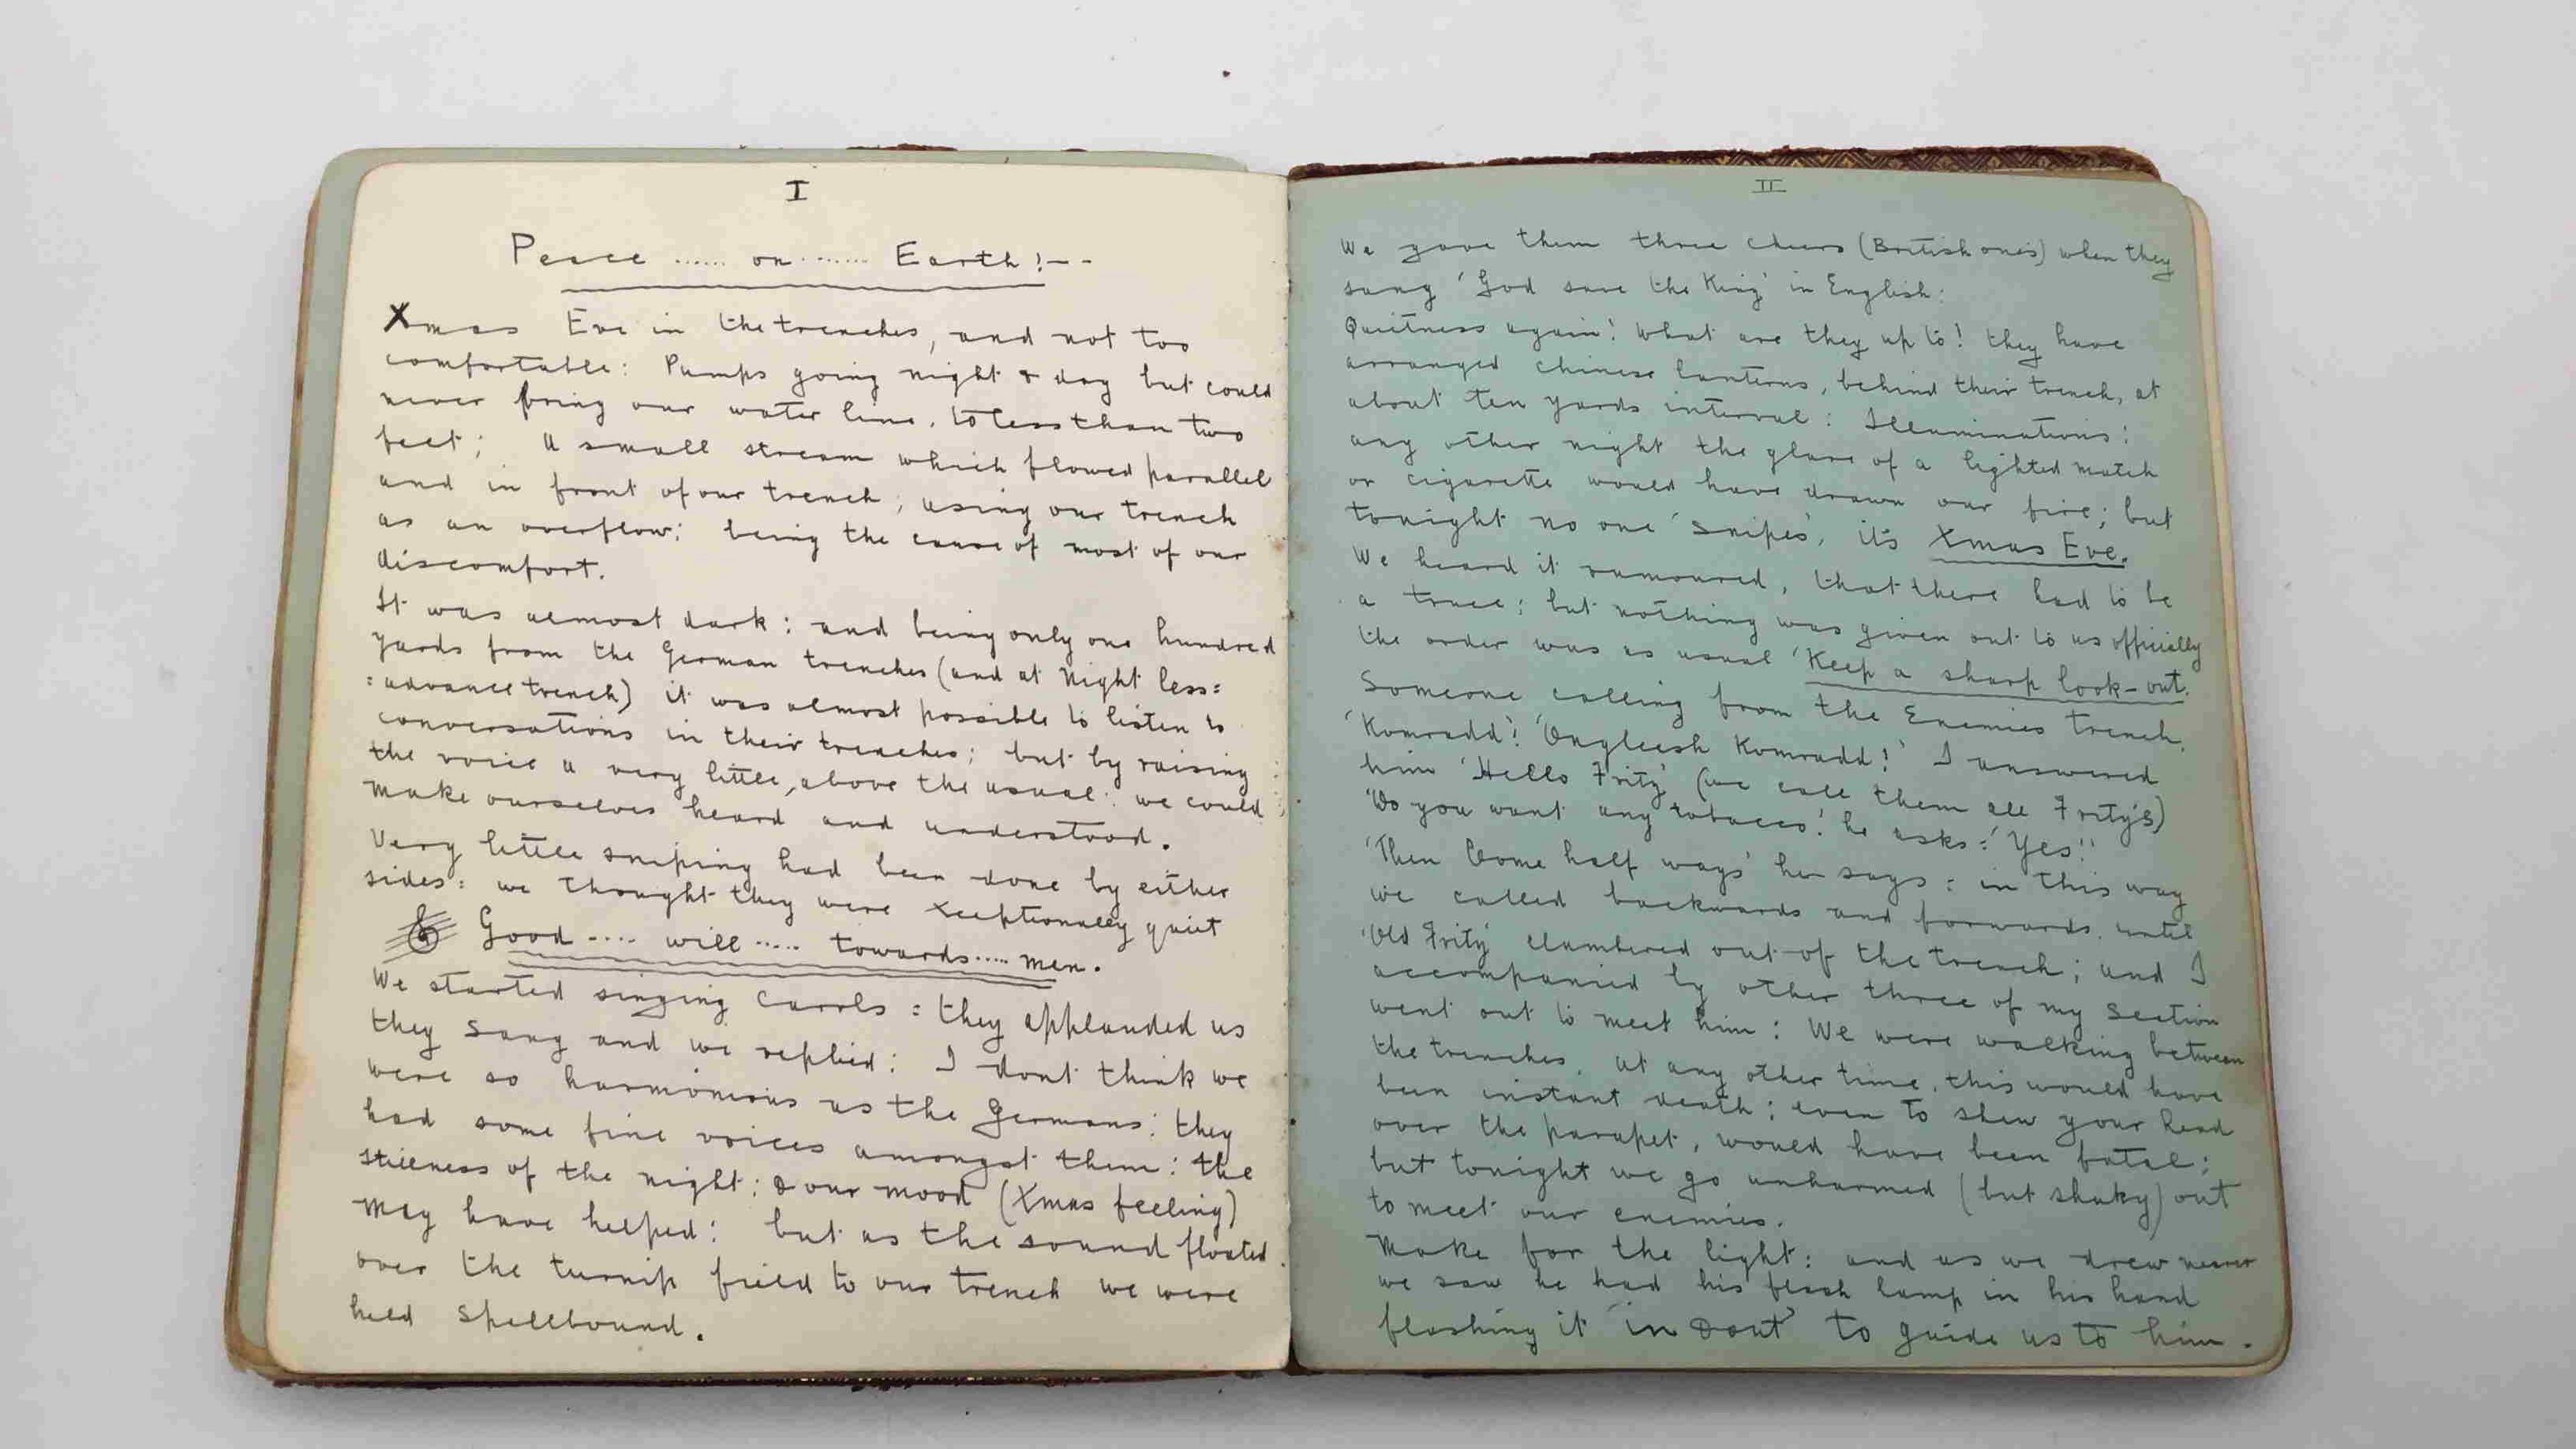 I
Peace ...... on ....... Earth! - -
Xmas Eve in the trenches, and not too
comfortable: Pumps going night & day but could
never bring our water line, to less than two
feet; a small stream which flowed parallel
and in front of our trench; using our trench
as an overflow; being the cause of most of our
discomfort.
It was almost dark: and being only one hundred
yards from the German trenches (and at Night less=
=advance trench) it was almost possible to listen to
conversations in their trenches; but by raising
the voice a very little, above the usual: we could
make ourselves heard and understood.
Very little sniping had been done by either
sides: we thought they were xceptionally quiet
Good .... will ..... towards .... men.
We started singing carols = they applauded us
they sang and we replied: I dont think we
were so harmonious as the Germans: they
had some fine voices amongst them: the
stillness of the night; & our mood (Xmas feeling)
may have helped: but as the sound floated
over the turnip field to our trench we were
held spellbound.
II
We gave them three cheers (British ones) when they
sang 'God save the King' in English:
Quietness again! What are they up to! they have
arranged chinese lanterns, behind their trench, at
about ten yards interval: Illuminations:
any other night the glare of a lighted match
or cigarette would have drawn our fire; but
tonight no one 'snipes', it's Xmas Eve.
We heard it rumoured, that there had to be
a truce; but nothing was given out to us officially
the order was as usual 'Keep a sharp look-out.
Someone calling from the Enemies trench,
'Komradd! 'Ongleesh Komradd!' I answered
him 'Hello Fritz' (we call them all Fritz's)
'Do you want any tobacco! he asks: 'Yes!'
'Then Come half ways' he says: in this way
we called backwards and forwards, until
'Old Fritz' clambered out of the trench; and I
accompanied by other three of my section
went out to meet him: We were walking between
the trenches, at any other time, this would have
been instant death; even to shew your head
over the parapet, would have been fatal;
but tonight we go unharmed (but shaky) out
to meet our enemies.
Make for the light: and as we drew nearer
we saw he had his flash lamp in his hand
flashing it 'in & out' to guide us to him.